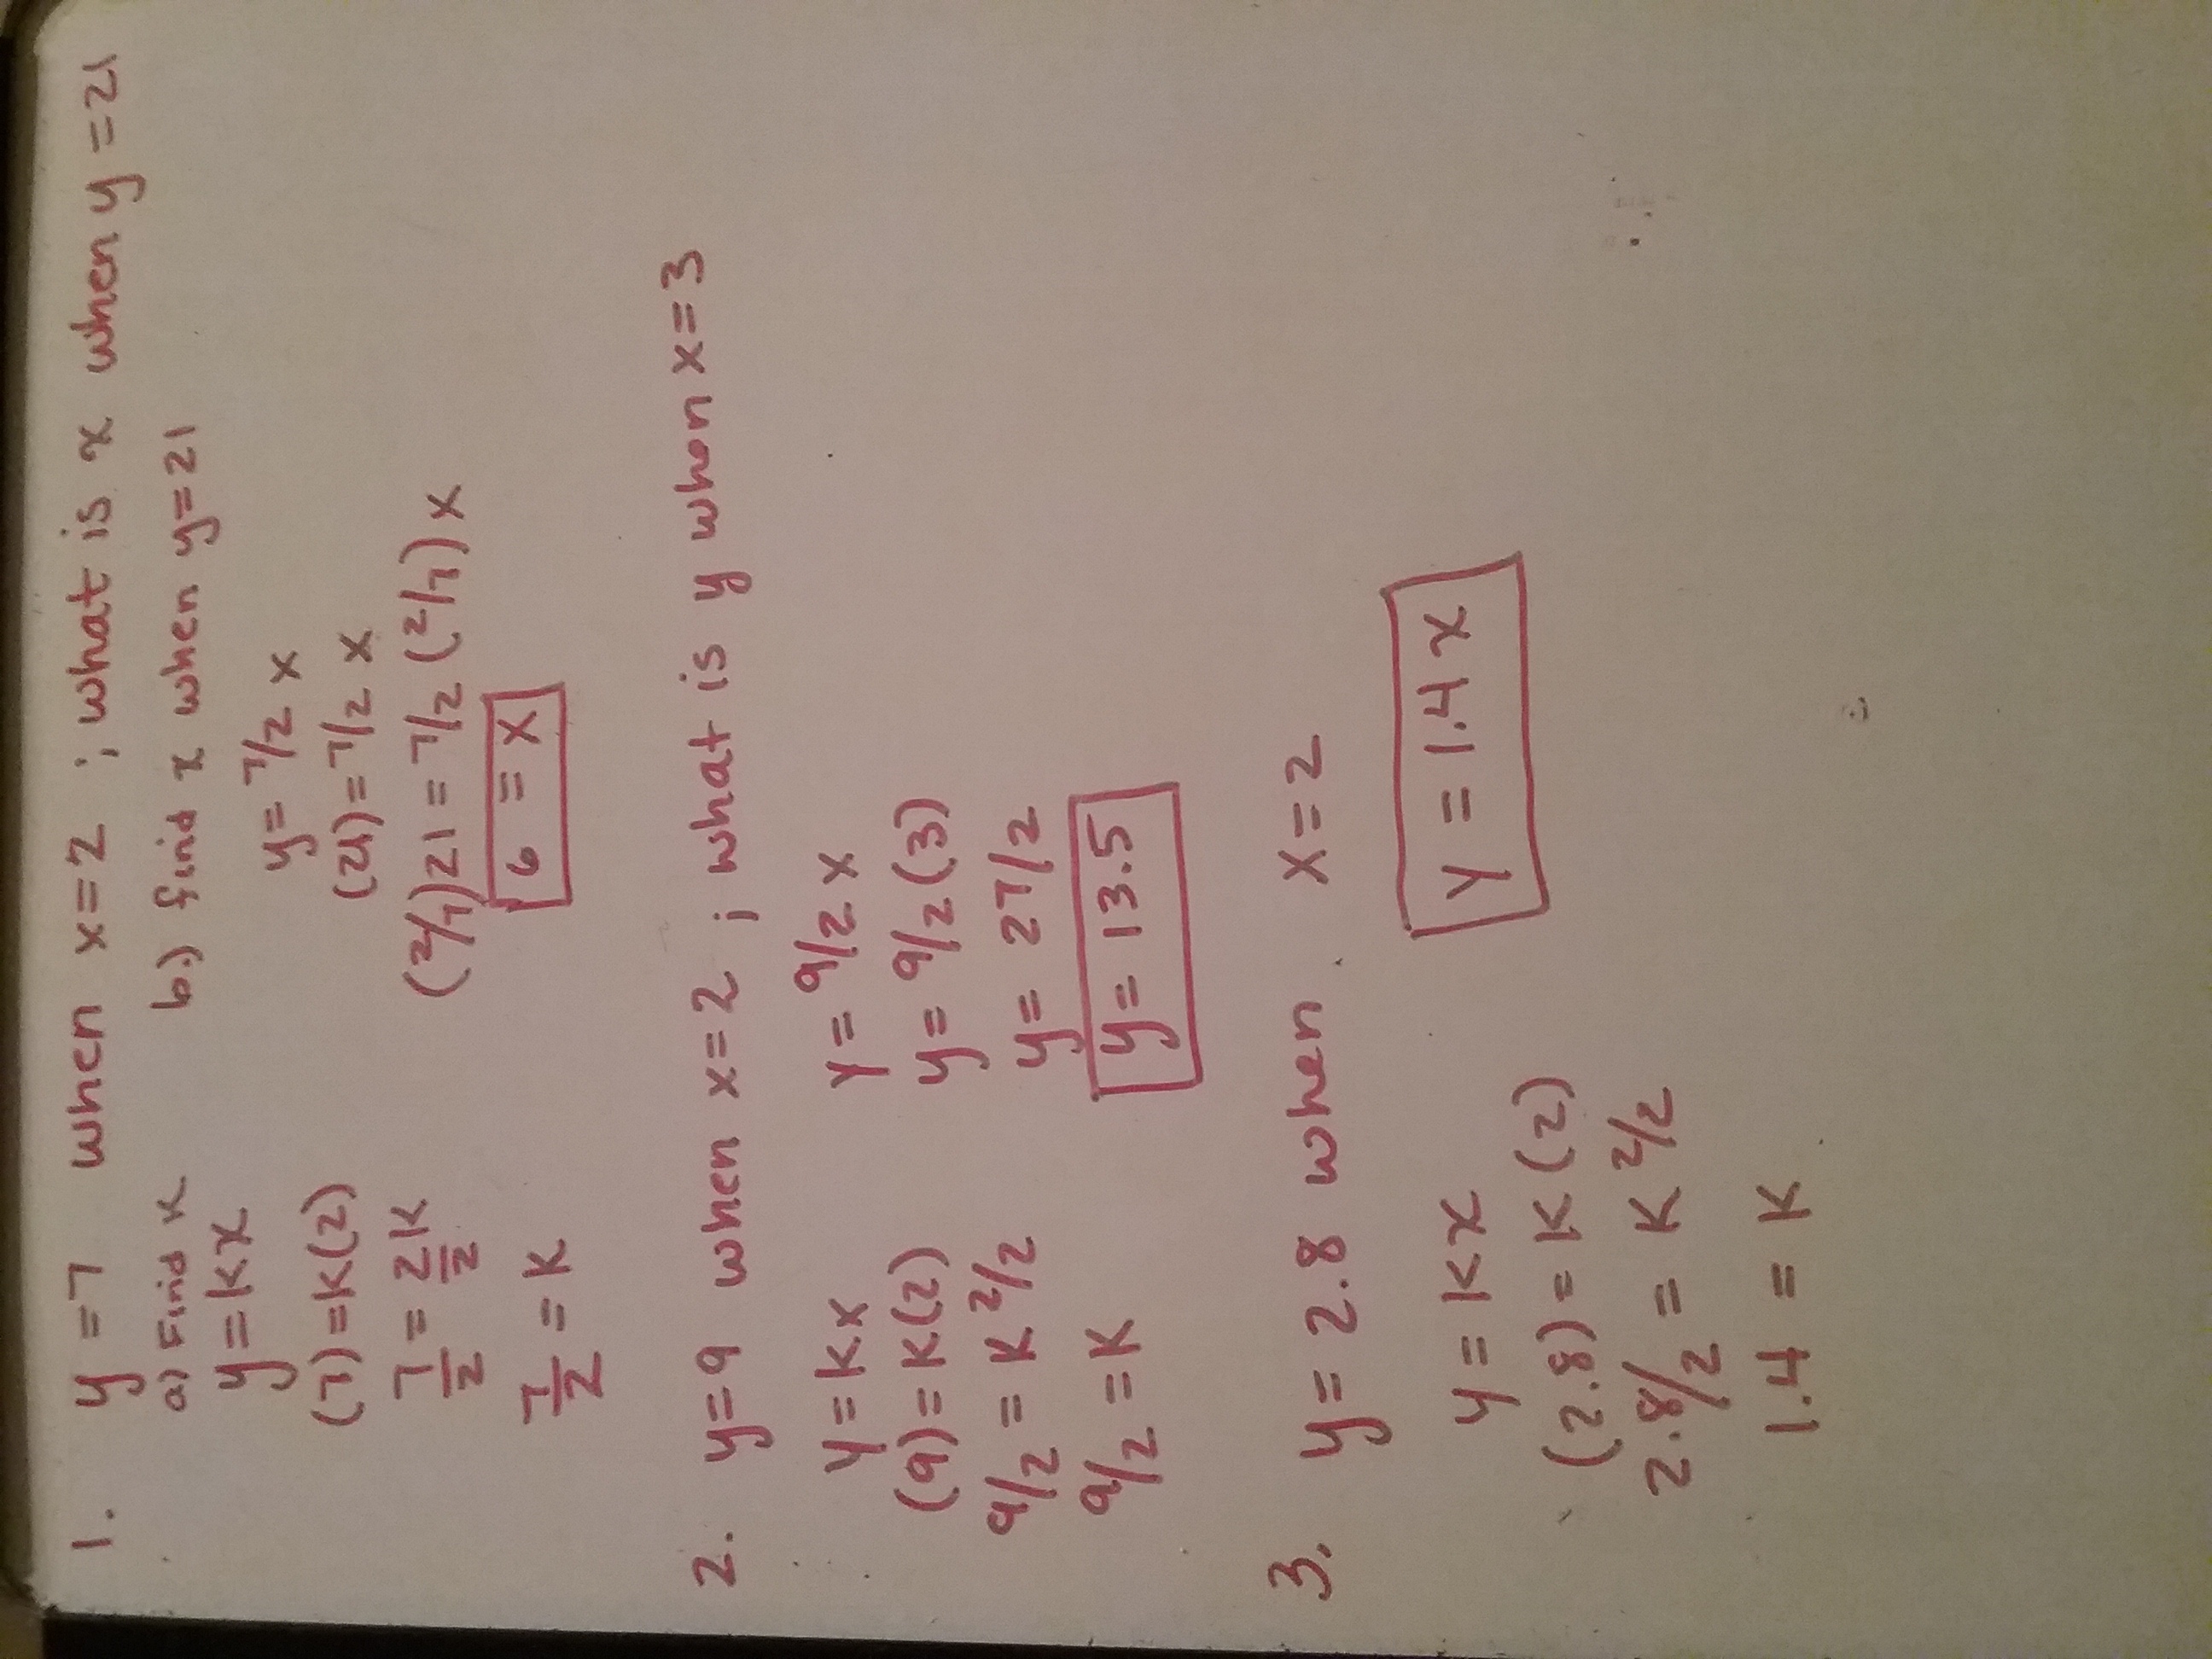 1. y = 7 when x = 2 ; what is x when y = 21
a) Find K
y = Kx
(7) = K(2)
7/2 = 2K/2
7/2 = K
b.) find x when y = 21
y = 7/2 x
(21) = 7/2 x
(2/7) 21 = 7/2 (2/7) x
6 = x
2. y = 9 when x = 2 ; what is y when x = 3
y = Kx
(9) = K(2)
9/2 = K 2/2
9/2 = K
y = 9/2 x
y = 9/2 (3)
y = 27/2
y = 13.5
3. y = 2.8 when x = 2
y = Kx
(2.8) = K (2)
2.8/2 = K 2/2
1.4 = K
y = 1.4 x